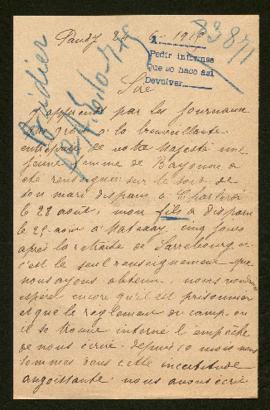 Sire
J'apprends par les journaux
que grâce à la bienveillante
entremise de votre Majesté une
jeune femme de Bayonne a
été renseignée sur le sort de
son mari disparu à
le 28 août, mon fils a disparu
le 25 août à cinq jours
après la retraite de Sarrebourg
c'est le seul renseignement que
nous ayons obtenu. nous
espoir encore qu'il est prisonnier
et que le règlement du camp où
il se trouve interné l'empêche
de nous écrire. depuis 10 mois nous
sommes dans cette incertitude
angoissante. nous avons écrit
Pedir informe
Que se hace así
Devolver
83871